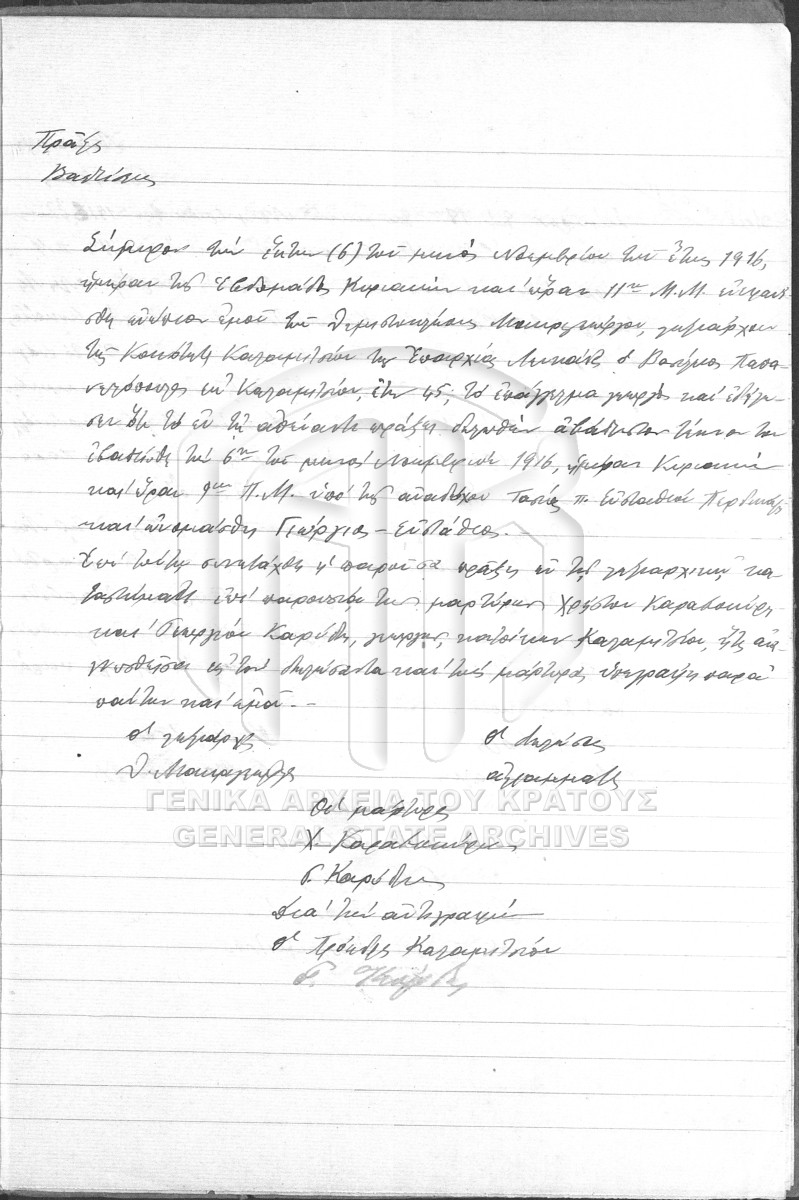 Πράξις
Βαπτίσεως
Σήμερον τὴν ἕκτην (6) τοῦ μηνὸς Νοεμβρίου τοῦ ἔτους 1916,
ἡμέραν τῆς ἑβδομάδος Κυριακὴν καὶ ὥραν 11ην Μ.Μ. ἐνεφανί-
σθη ἐνώπιον ἐμοῦ τοῦ Θεμιστοκλέους Μαυρογεώργου, ληξιάρχου
τῆς Κοινότητος Καλαμιτσίου τῆς Ἐπαρχίας Λευκάδος ὁ Βασίλειος Παπα-
ἐκ Καλαμιτσίου, ἐτῶν 45, τὸ ἐπάγγελμα γεωργὸς καὶ ἐδήλω-
σεν ὅτι τὸ ἐν τῇ πράξει δηλωθὲν ἀβάπτιστον τέκνον του
ἐβαπτίσθη τὴν 6ην τοῦ μηνὸς Νοεμβρίου 1916, ἡμέραν Κυριακὴν
καὶ ὥραν 9ην Π.Μ. ὑπὸ τῆς ἀναδόχου π. Εὐσταθίου
καὶ ὠνομάσθη Γεώργιος - Εὐστάθιος. -
Ἐπὶ τούτῳ συνετάχθη ἡ παροῦσα πρᾶξις ἐν τῷ ληξιαρχικῷ κα-
ταστήματι ἐπὶ παρουσίᾳ τῶν μαρτύρων Χρήστου Καραβοκύρη
καὶ Γεωργίου Καρύδη, γεωργῶν, κατοίκων Καλαμιτσίου, ἥτις ἀνα-
γνωσθεῖσα εἰς τὸν δηλώσαντα καὶ τοὺς μάρτυρας ὑπεγράφη παρὰ
πάντων καὶ ἐμοῦ. -
ὁ ληξίαρχος ὁ δηλώσας
Θ. Μαυρογεώργος ἀγράμματος
Οἱ μάρτυρες
Χ. Καραβοκύρης
Γ. Καρύδης
Διὰ τὴν ἀντιγραφὴν
ὁ Πρόεδρος Καλαμιτσίου
Γ.
ΓΕΝΙΚΑ ΑΡΧΕΙΑ ΤΟΥ ΚΡΑΤΟΥΣ
GENERAL STATE ARCHIVES